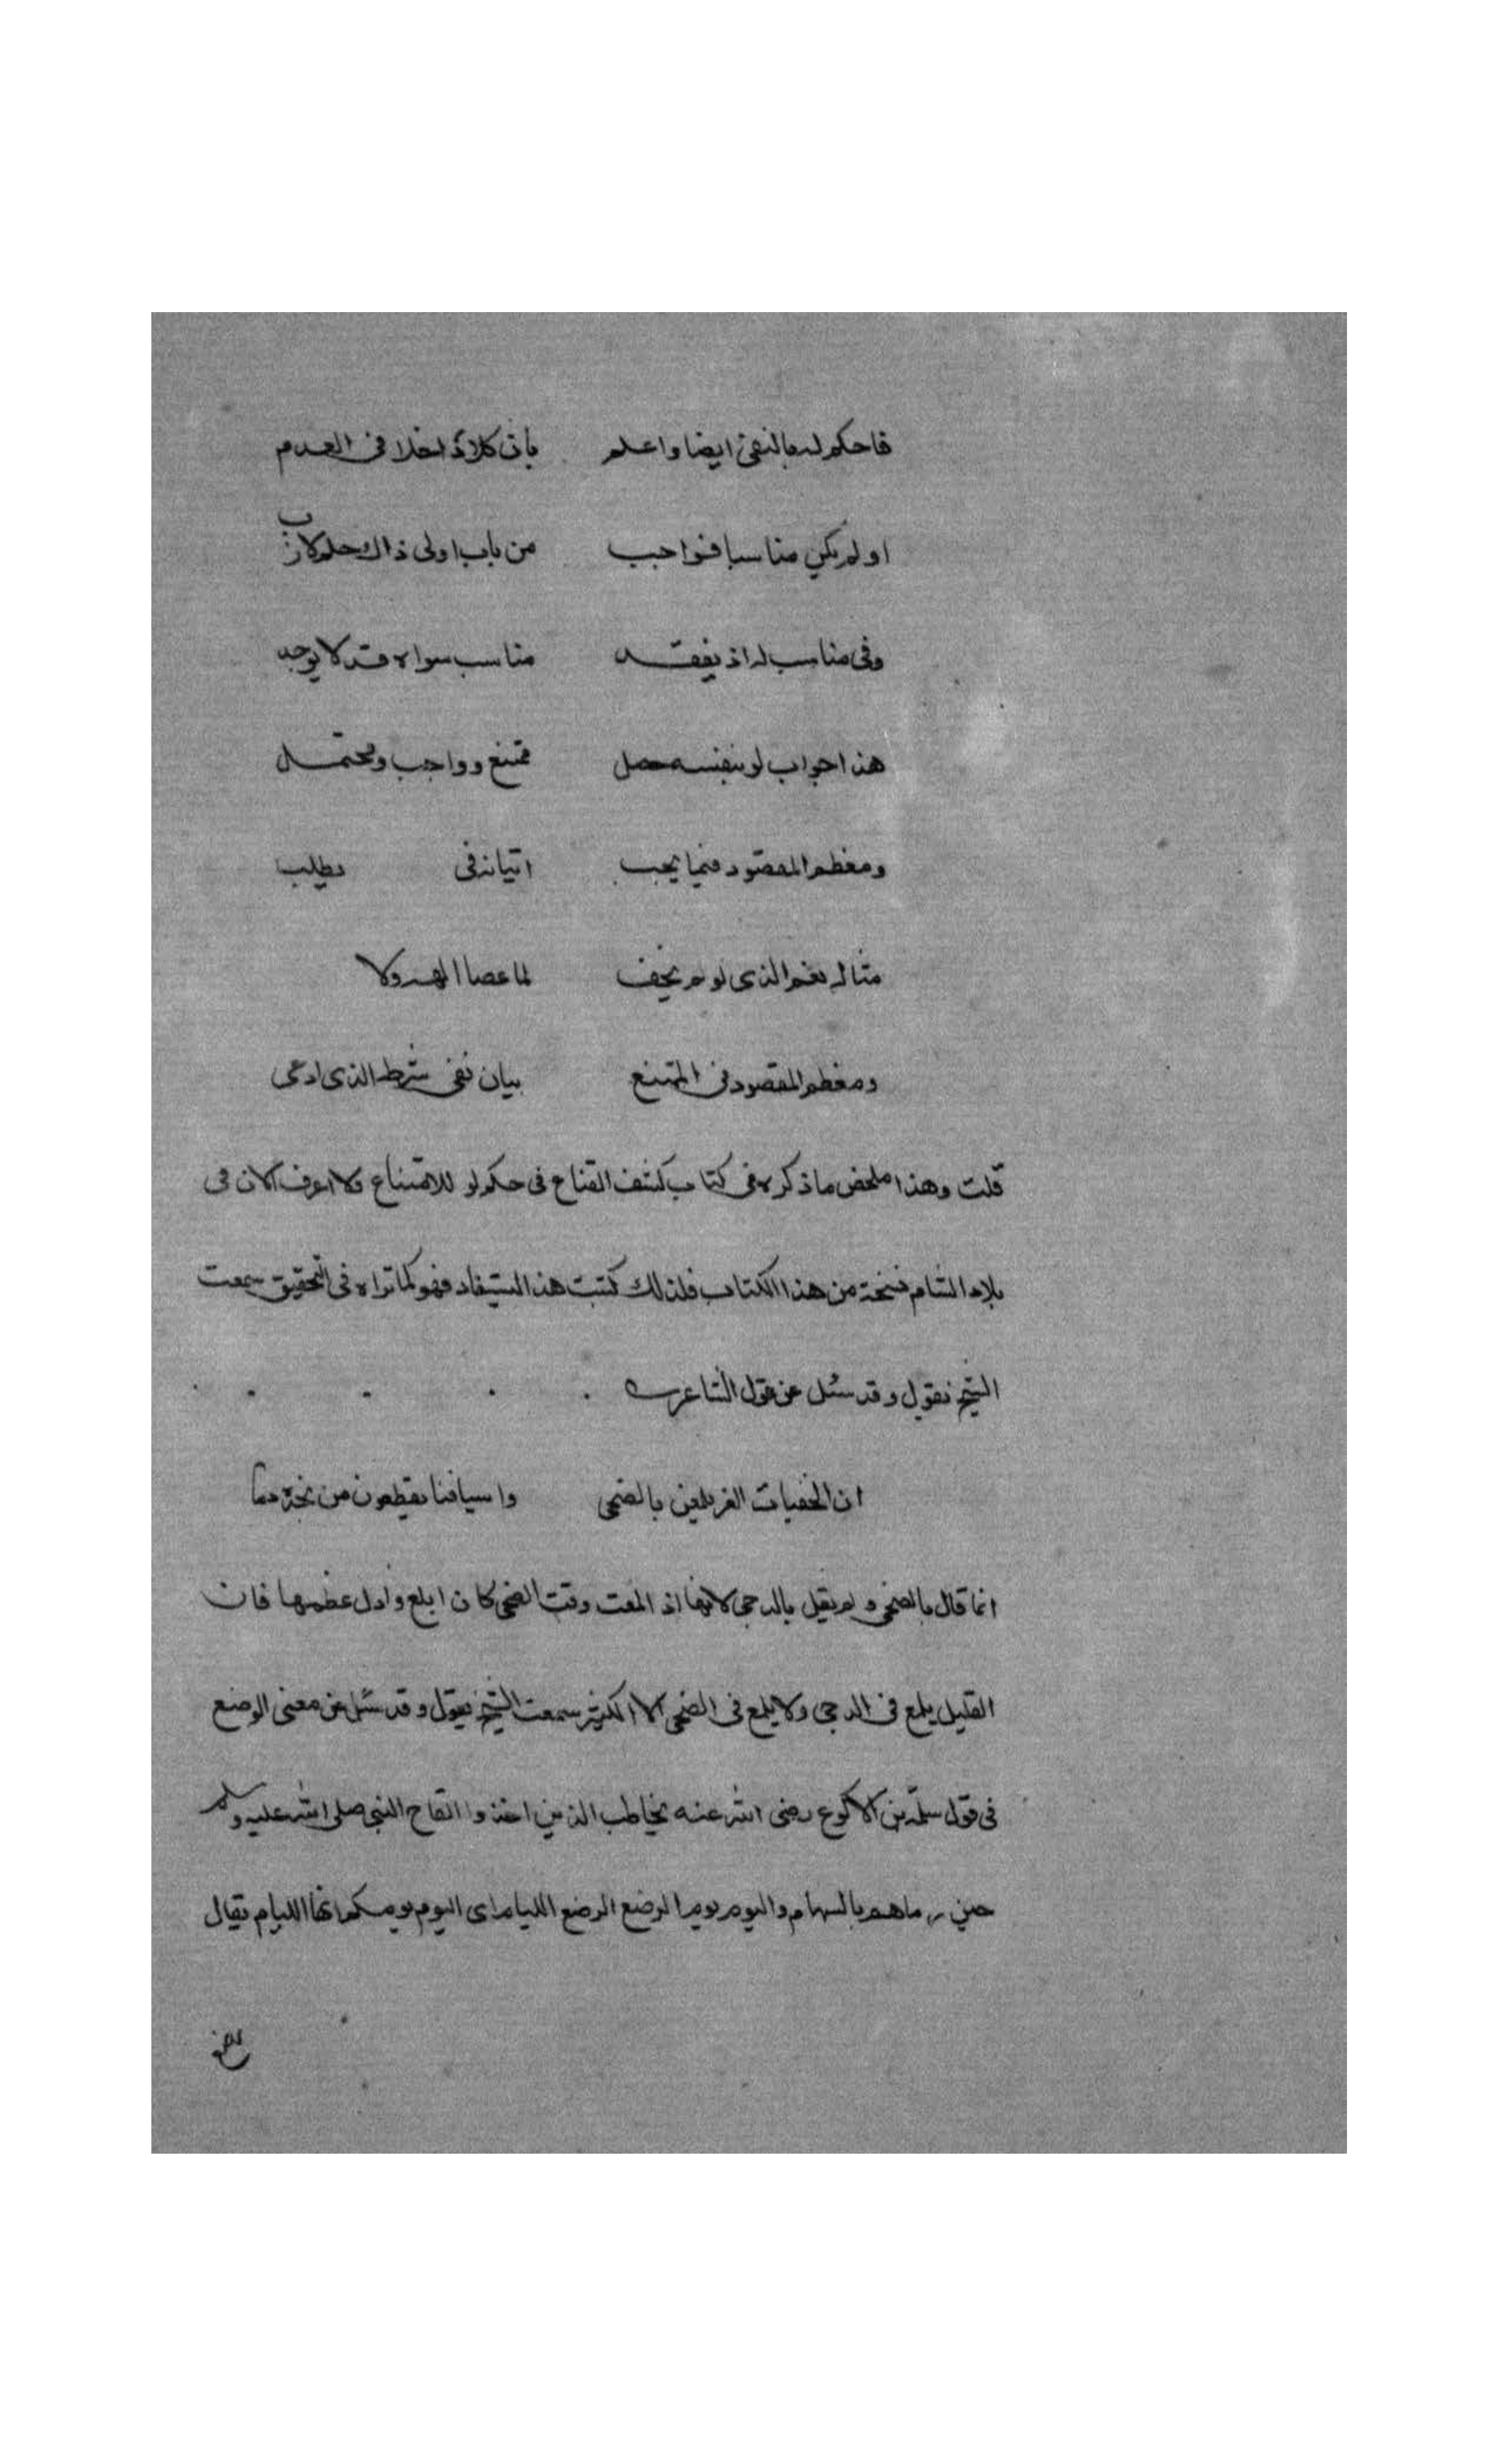 فاحكم له بالنفي ايضا واعلم بأن كلا داخلا في العدم
او لم يكن مناسبا فواجب من باب اولى ذاك حكم لازب
وفي مناسب له اذ يفقد مناسب سواه قد لا يوجد
هذا جواب لو بنفسه حصل ممتنع وواجب ومحتمل
ومعظم المقصود فيما يجب اتيانه في يطلب
مثاله نعم الذي لو لم يخف لما عصا الهه ولا
ومعظم المقصود في الممتنع بيان نفي شرطه الذي ادعى
قلت وهذا ملخص ما ذكره في كتاب كشف القناع في حكم لو للامتناع ولا اعرف الان في
بلاد الشام نسخة من هذا الكتاب فلذلك كتبت هذا ليستفاد فهو كما تراه في التحقيق سمعت
الشيخ يقول وقد سئل عن قول الشاعر
ان الخفيات الغر يلمعن بالضحى واسيافنا يقطعون من نجدة دما
انما قال بالضحى ولم يقل بالدجى لانها اذ المعت وقت الضحى كان ابلغ وادل عظمها فان
القليل يلمع في الدجى ولا يلمع في الضحى الا الكثير سمعت الشيخ يقول وقد سئل عن معنى الرضع
في قول سلمة بن الاكوع رضى الله عنه يخاطب الذين اخذوا القاح النبي صلى الله عليه وسلم
حين رماهم بالسهام واليوم يوم الرضع الرضع الليام اى اليوم يومكم ايها الليام يقال